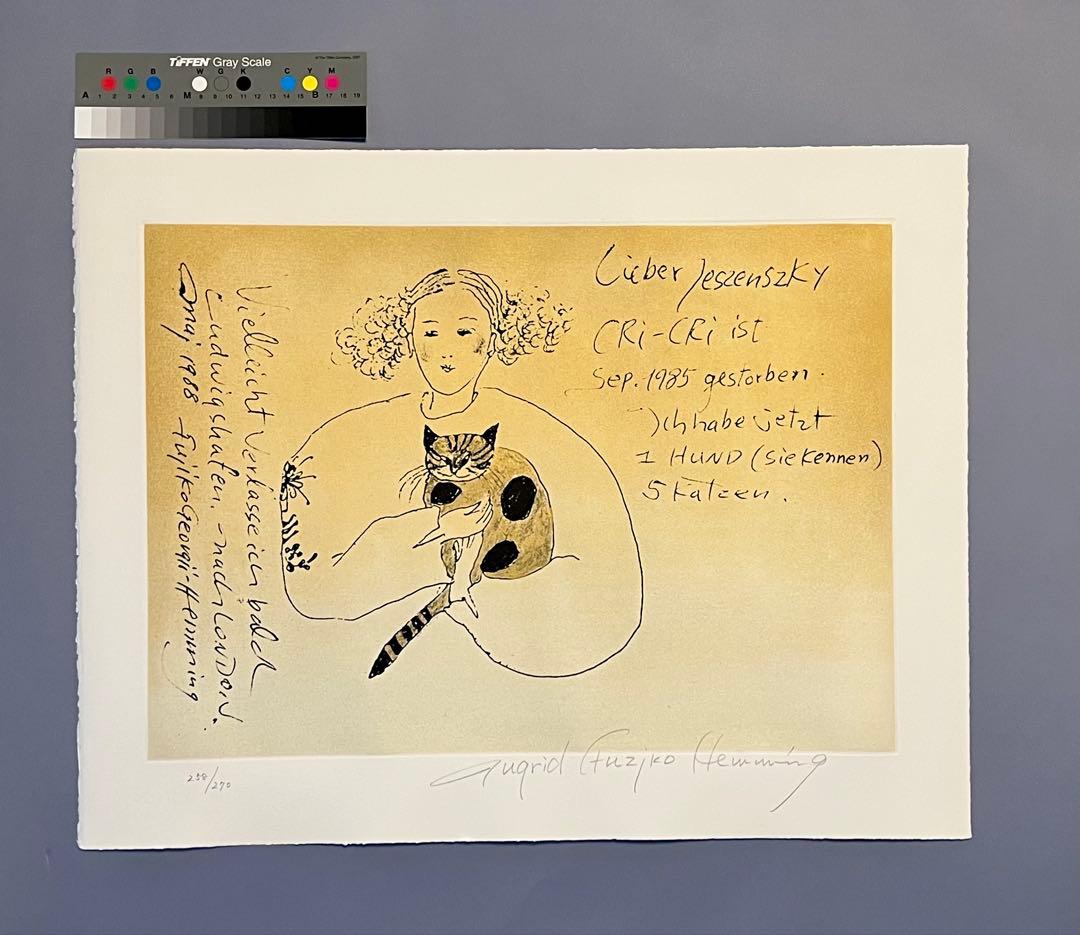 TIFFEN Gray Scale
R G B W G K C Y M
A 1 2 3 4 5 6 M 8 9 10 11 12 13 14 15 B 17 18 19
Lieber Jeszenszky
CRi-CRi ist
Sep. 1985 gestorben.
Ich habe jetzt
1 HUND (sie kennen)
5 Katzen.
Vielleicht verlasse ich bald
Ludwigshafen. - nach LONDON.
maj 1988 Fujiko Georgii-Hemming
258/270
Ingrid Fuzjko Hemming